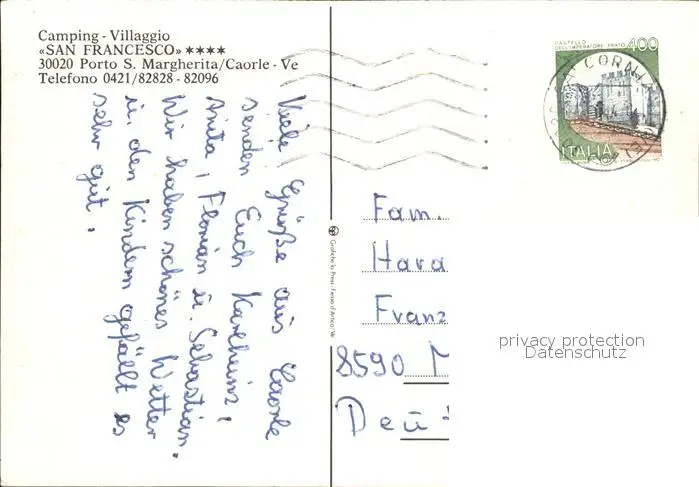 Camping - Villaggio
«SAN FRANCESCO» ★★★★
30020 Porto S. Margherita/Caorle - Ve
Telefono 0421/82828 - 82096
Viele Grüße aus Caorle
senden Euch Karlheinz,
Anita, Florian u. Sebastian.
Wir haben schönes Wetter
u. den Kindern gefällt es
sehr gut.
CASTELLO
DELL'IMPERATORE PRATO 400
ITALIA
Fam.
Hara
Franz
8590 M
Deu
privacy protection
Datenschutz